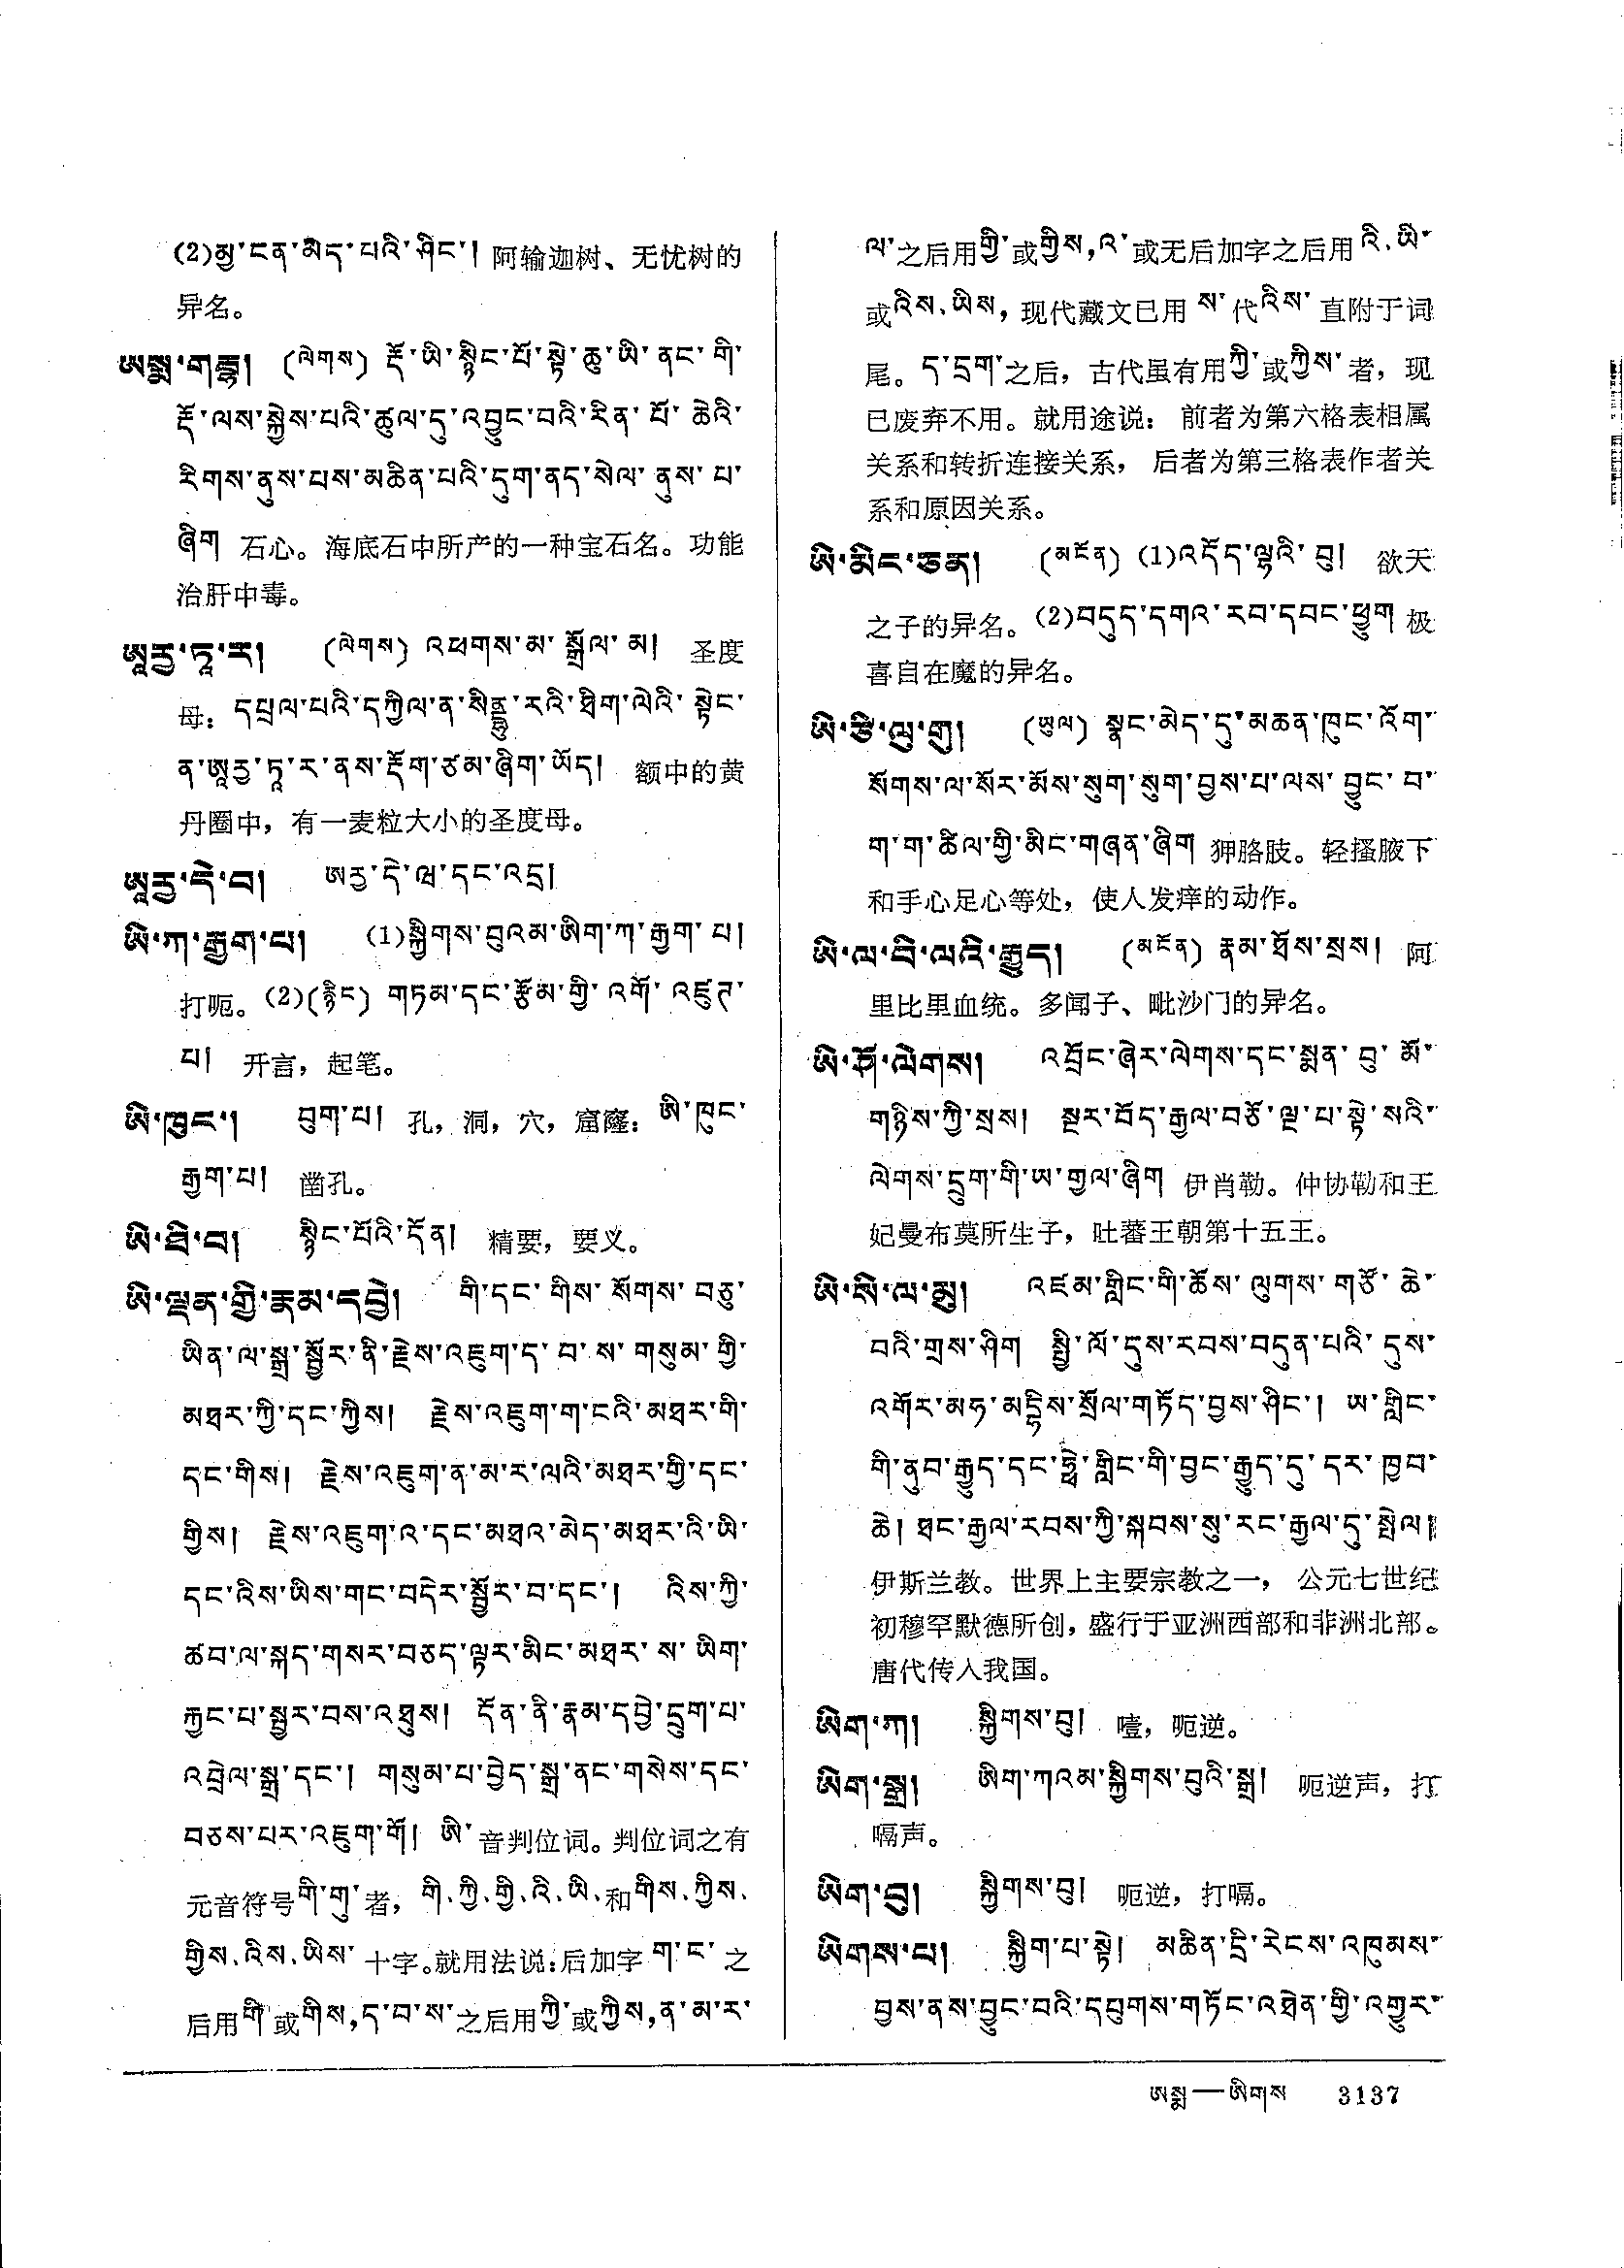 (2)མྱ་ངན་མེད་པའི་ཤིང་། 阿输迦树、无忧树的
异名。
ཨསྨ་གརྦྷ། (ལེགས) རྡོ་ཡི་སྙིང་པོ་སྟེ་ཆུ་ཡི་ནང་གི་
རྡོ་ལས་སྐྱེས་པའི་ཚུལ་དུ་འབྱུང་བའི་རིན་པོ་ཆེའི་
རིགས་ནུས་པས་མཆིན་པའི་དུག་ནད་སེལ་ནུས་པ་
ཞིག 石心。海底石中所产的一种宝石名。功能
治肝中毒。
ཨཱརྱ་ཏཱ་ར། (ལེགས) འཕགས་མ་སྒྲོལ་མ། 圣度
母：དཔྲལ་པའི་དཀྱིལ་ན་སིནྡྷུ་རའི་ཐིག་ལེའི་སྟེང་
ན་ཨཱརྱ་ཏཱ་ར་ནས་རྡོག་ཙམ་ཞིག་ཡོད། 额中的黄
丹圈中，有一麦粒大小的圣度母。
ཨཱརྱ་དེ་བ། ཨརྱ་དེ་ཝ་དང་འདྲ།
ཨི་ཀ་རྒྱག་པ། (1)སྐྱིགས་བུའམ་ཨིག་ཀ་རྒྱག་པ།
打呃。(2)(རྙིང) གཏམ་དང་རྩོམ་གྱི་འགོ་འཛུཊ་
པ། 开言，起笔。
ཨི་ཁུང་། བུག་པ། 孔，洞，穴，窟窿：ཨི་ཁུང་
རྒྱག་པ། 凿孔。
ཨི་ཐི་བ། སྙིང་པོའི་དོན། 精要，要义。
ཨི་ལྡན་གྱི་རྣམ་དབྱེ། གི་དང་གིས་སོགས་བཅུ་
ཡིན་ལ་སྒྲ་སྦྱོར་ནི་རྗེས་འཇུག་ད་བ་ས་གསུམ་གྱི་
མཐར་ཀྱི་དང་ཀྱིས། རྗེས་འཇུག་ག་ངའི་མཐར་གི་
དང་གིས། རྗེས་འཇུག་ན་མ་ར་ལའི་མཐར་གྱི་དང་
གྱིས། རྗེས་འཇུག་འ་དང་མཐའ་མེད་མཐར་འི་ཡི་
དང་འིས་ཡིས་གང་བདེར་སྦྱོར་བ་དང་། འིས་ཀྱི་
ཚབ་ལ་སྐད་གསར་བཅད་ལྟར་མིང་མཐར་ས་ཡིག་
རྐྱང་པ་སྦྱར་བས་འཐུས། དོན་ནི་རྣམ་དབྱེ་དྲུག་པ་
འབྲེལ་སྒྲ་དང་། གསུམ་པ་བྱེད་སྒྲ་ནང་གསེས་དང་
བཅས་པར་འཇུག་གོ། ཨི་音判位词。判位词之有
元音符号གི་གུ་者，གི、ཀྱི、གྱི、འི、ཡི、和གིས、ཀྱིས、
གྱིས、འིས、ཡིས་十字。就用法说：后加字ག་ང་之
后用གི་或གིས,ད་བ་ས་之后用ཀྱི་或ཀྱིས,ན་མ་ར་
ལ་之后用གྱི་或གྱིས,འ་或无后加字之后用འི、ཡི་
或འིས、ཡིས，现代藏文已用ས་代འིས་直附于词
尾。ད་དྲག་之后，古代虽有用ཀྱི་或ཀྱིས་者，现
已废弃不用。就用途说：前者为第六格表相属
关系和转折连接关系，后者为第三格表作者关
系和原因关系。
ཨི་མིང་ཅན། (མངོན) (1)འདོད་ལྷའི་བུ། 欲天
之子的异名。(2)བདུད་དགའ་རབ་དབང་ཕྱུག 极
喜自在魔的异名。
ཨི་ཙི་ལུ་གུ། (ཡུལ) སྣང་མེད་དུ་མཆན་ཁུང་འོག་
སོགས་ལ་སོར་མོས་སུག་སུག་བྱས་པ་ལས་བྱུང་བ་
ག་ག་ཚིལ་གྱི་མིང་གཞན་ཞིག 狎胳肢。轻搔腋下
和手心足心等处，使人发痒的动作。
ཨི་ལ་བི་ལའི་རྒྱུད། (མངོན) རྣམ་ཐོས་སྲས། 阿
里比里血统。多闻子、毗沙门的异名。
ཨི་ཤོ་ལེགས། འབྲོང་ཞེར་ལེགས་དང་སྨན་བུ་མོ་
གཉིས་ཀྱི་སྲས། སྔར་བོད་རྒྱལ་བཅོ་ལྔ་པ་སྟེ་སའི་
ལེགས་དྲུག་གི་ཨ་གྱལ་ཞིག 伊肖勒。仲协勒和王
妃曼布莫所生子，吐蕃王朝第十五王。
ཨི་སི་ལ་མུ། འཛམ་གླིང་གི་ཆོས་ལུགས་གཙོ་ཆེ་
བའི་གྲས་ཤིག སྤྱི་ལོ་དུས་རབས་བདུན་པའི་དུས་
འགོར་མཧ་མདྡིས་སྲོལ་གཏོད་བྱས་ཤིང་། ཨ་གླིང་
གི་ནུབ་རྒྱུད་དང་ཧྥེ་གླིང་གི་བྱང་རྒྱུད་དུ་དར་ཁྱབ་
ཆེ། ཐང་རྒྱལ་རབས་ཀྱི་སྐབས་སུ་རང་རྒྱལ་དུ་སྤེལ།
伊斯兰教。世界上主要宗教之一，公元七世纪
初穆罕默德所创，盛行于亚洲西部和非洲北部。
唐代传入我国。
ཨིག་ཀ། སྐྱིགས་བུ། 噎，呃逆。
ཨིག་སྒྲ། ཨིག་ཀའམ་སྐྱིགས་བུའི་སྒྲ། 呃逆声，打
嗝声。
ཨིག་བུ། སྐྱིགས་བུ། 呃逆，打嗝。
ཨིགས་པ། སྐྱིག་པ་སྟེ། མཆིན་དྲི་རེངས་འཁུམས་
བྱས་ནས་བྱུང་བའི་དབུགས་གཏོང་འཐེན་གྱི་འགྱུར་
ཨསྨ—ཨིགས 3137